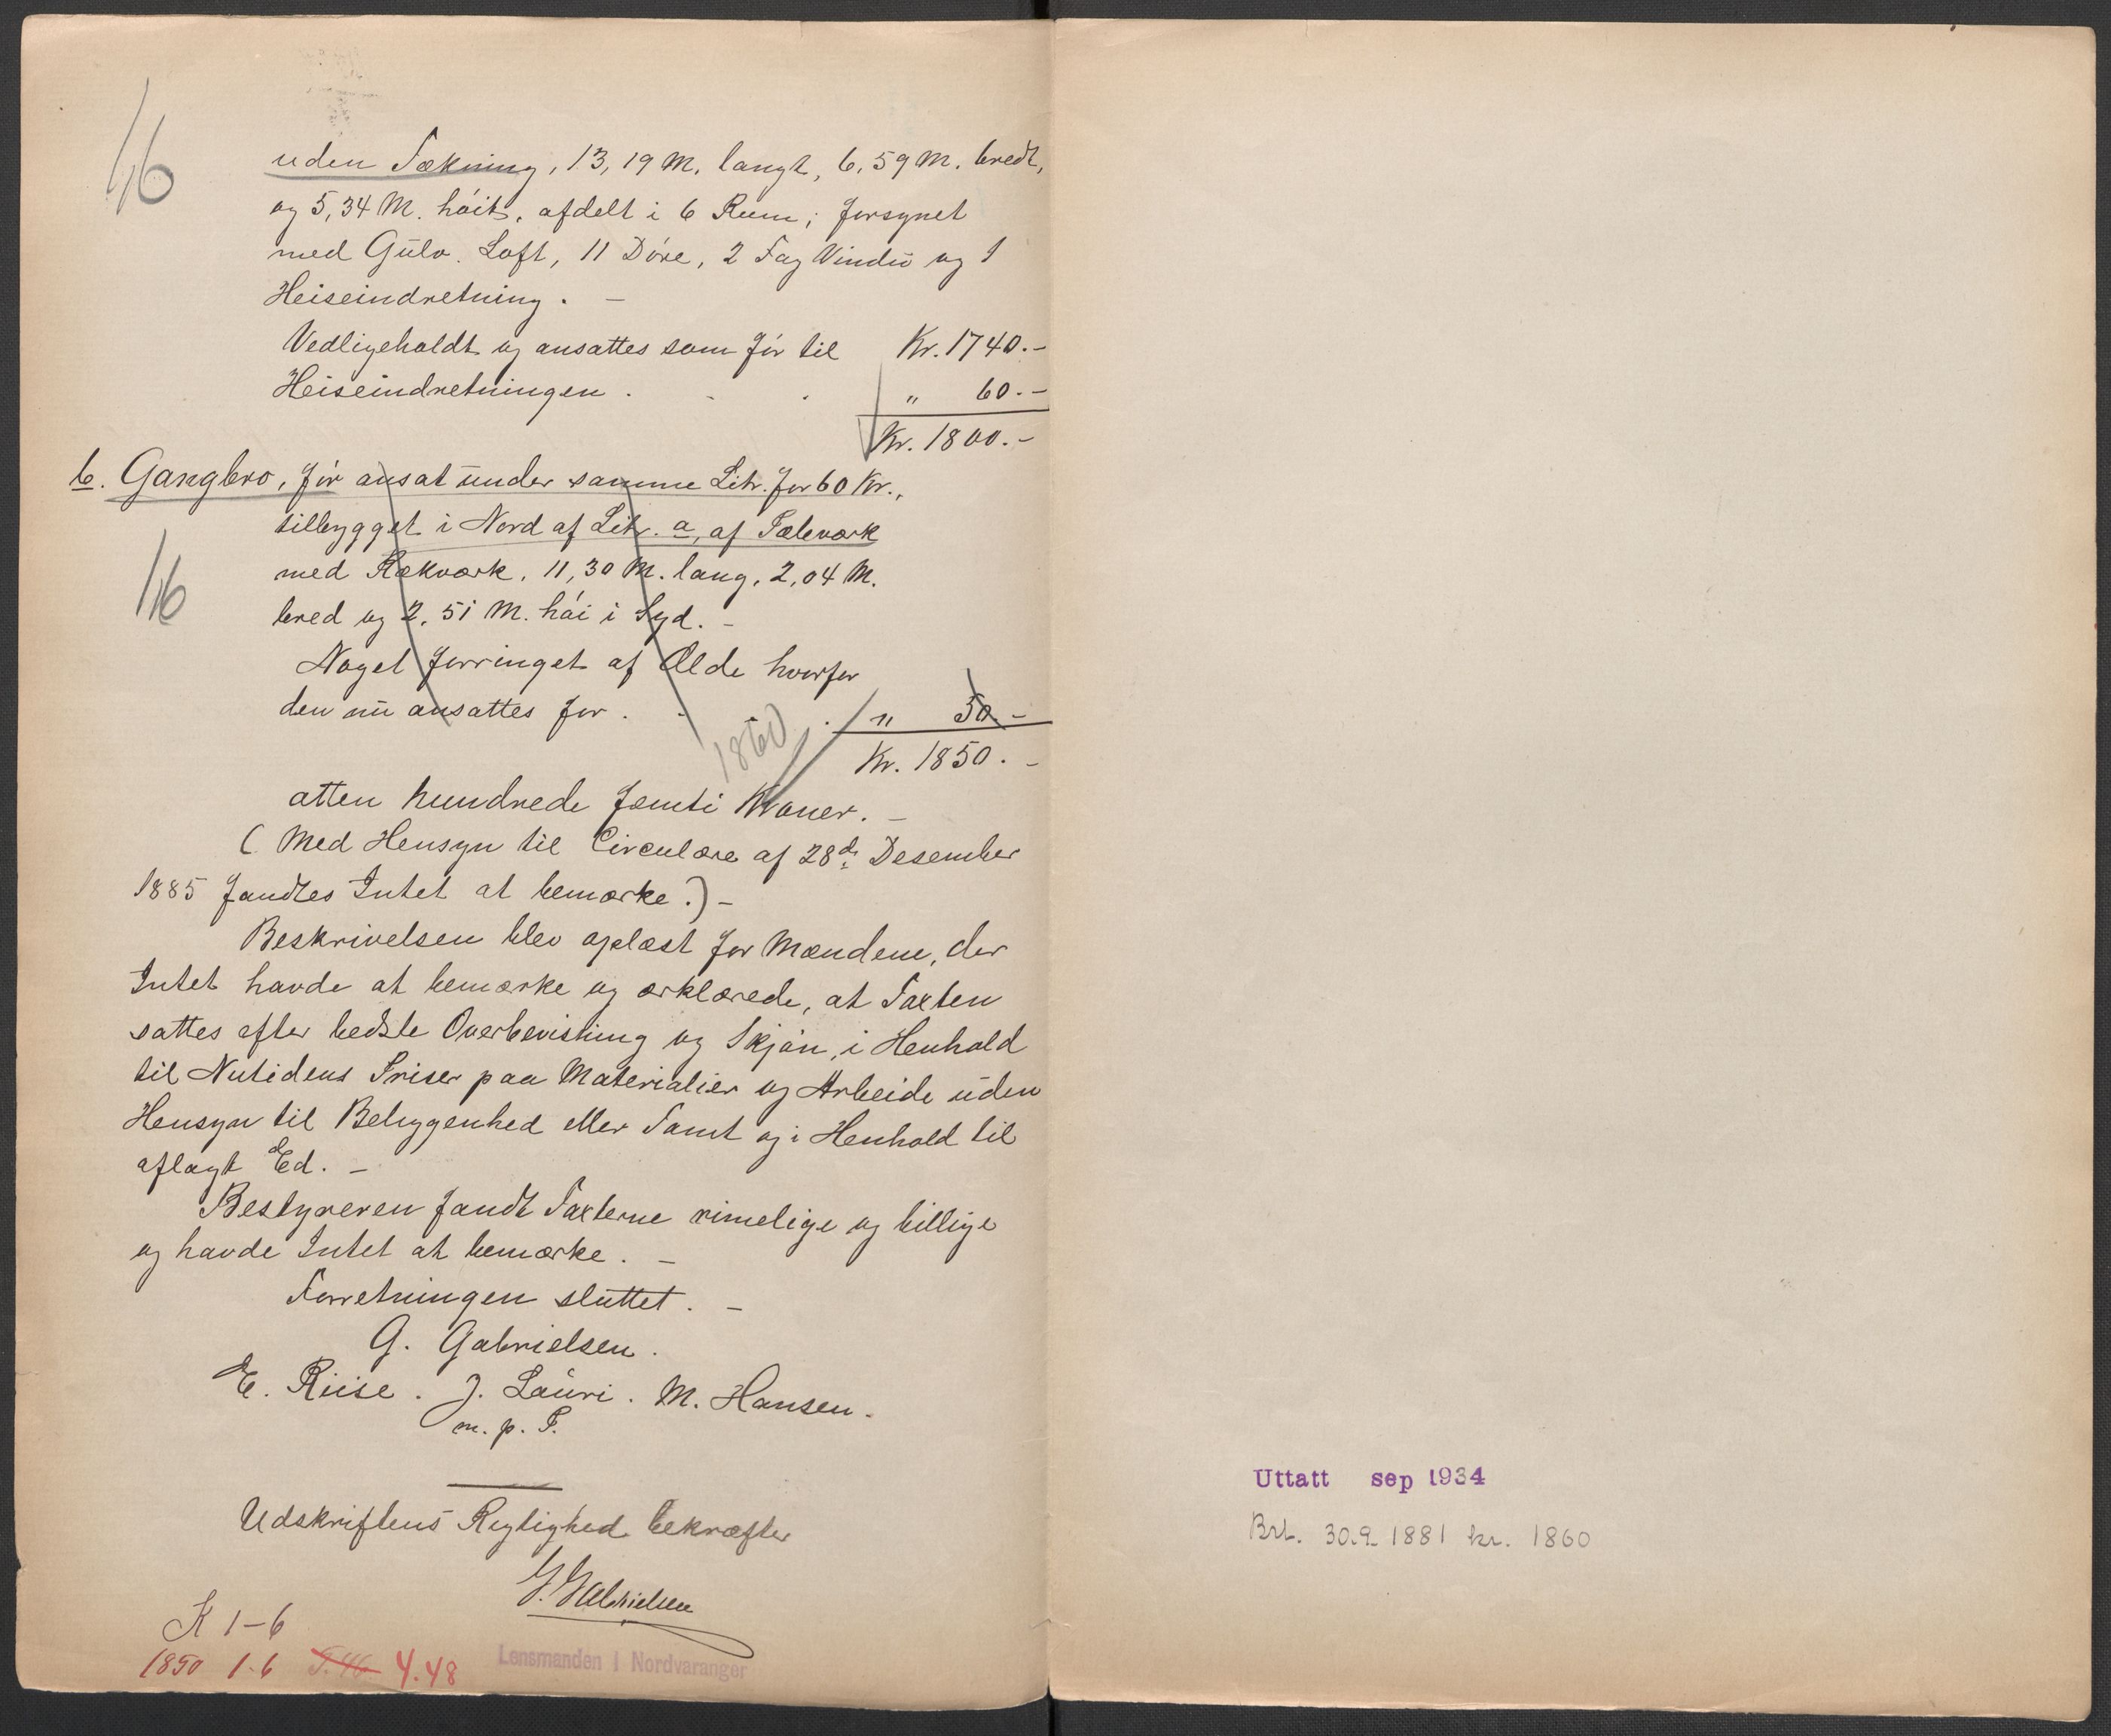 1/6
uden Tækning, 13,19 M. langt, 6,59 M. bredt,
og 5,34 M. höit, afdelt i 6 Rum; forsynet
med Gulv. Loft, 11 Döre, 2 Fag Vindu og 1
Heiseindretning. –
Vedligeholdt og ansattes som för til Kr. 1740.–
Heiseindretningen . . . " 60.–
Kr. 1800.–
b. Gangbro, för ansat under samme Litr. for 60 Kr.,
tilbygget i Nord af Litr. a, af Pæleværk
1/6
med Rækværk, 11,30 M. lang, 2,04 M.
bred og 2,51 M. höi i Syd. –
Noget forringet af Ælde hvorfor
den nu ansattes for . . . " 50.–
1860
Kr. 1850.–
atten hundrede femti Kroner. –
(Med Hensyn til Circulære af 28d. Desember
1885 fandtes Intet at bemærke.) –
Beskrivelsen blev oplæst for Mændene, der
Intet havde at bemærke og erklærede, at Taxten
sattes efter bedste Overbevisning og Skjön, i Henhold
til Nutidens Priser paa Materialier og Arbeide uden
Hensyn til Beliggenhed eller Tomt og i Henhold til
aflagt Ed. –
Bestyreren fandt Taxterne rimelige og billige
og havde Intet at bemærke. –
Forretningen sluttet. –
G. Gabrielsen.
E. Riise. J. Lauri. M. Hansen.
m. p. P.
Udskriftens Rigtighed bekræfter
G. Gabrielsen
K 1–6
1850 1.6 5.46 4.48
Lensmanden i Nordvaranger
Uttatt sep 1934
Brt. 30.9. 1881 kr. 1860